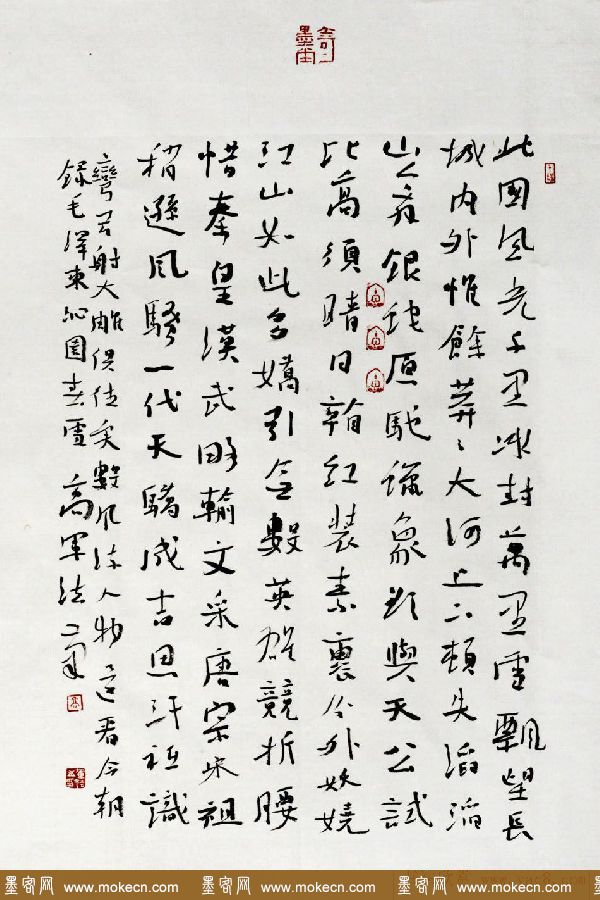 北國風光千里冰封萬里雪飄望長
城內外惟餘莽〻大河上下頓失滔滔
山舞銀蛇原馳蠟象欲與天公試
比高須晴日看紅裝素裹分外妖嬈
江山如此多嬌引無數英雄競折腰
惜秦皇漢武略輸文采唐宗宋祖
稍遜風騷一代天驕成吉思汗祗識
彎弓射大雕俱往矣數風流人物還看今朝
錄毛澤東沁園春雪 高軍法
墨客网 www.mokecn.com 墨客网 www.mokecn.com 墨客网 www.mokecn.com